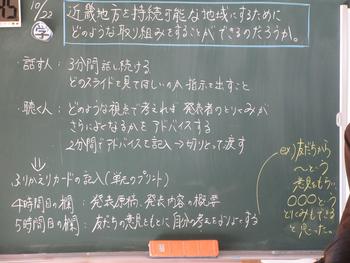 10/22
学
近畿地方を持続可能な地域にするために
どのような取り組みをすることができるのだろうか。
・話す人：3分間話し続ける
どのスライドを見てほしいのか指示を出すこと
・聴く人：どのような視点で考えれば発表者のとりくみが
さらによくなるかをアドバイスする
2分間でアドバイスを記入→切りとって渡す
⇓
ふりかえりカードの記入(単元のプリント)
4時間目の欄：発表原稿、発表内容の概要
5時間目の欄：友だちの意見をもとに自分の考えをよりよくする
ex)友だちから
〜という
意見をもらい
○○○という
とりくみもできる
と思った。